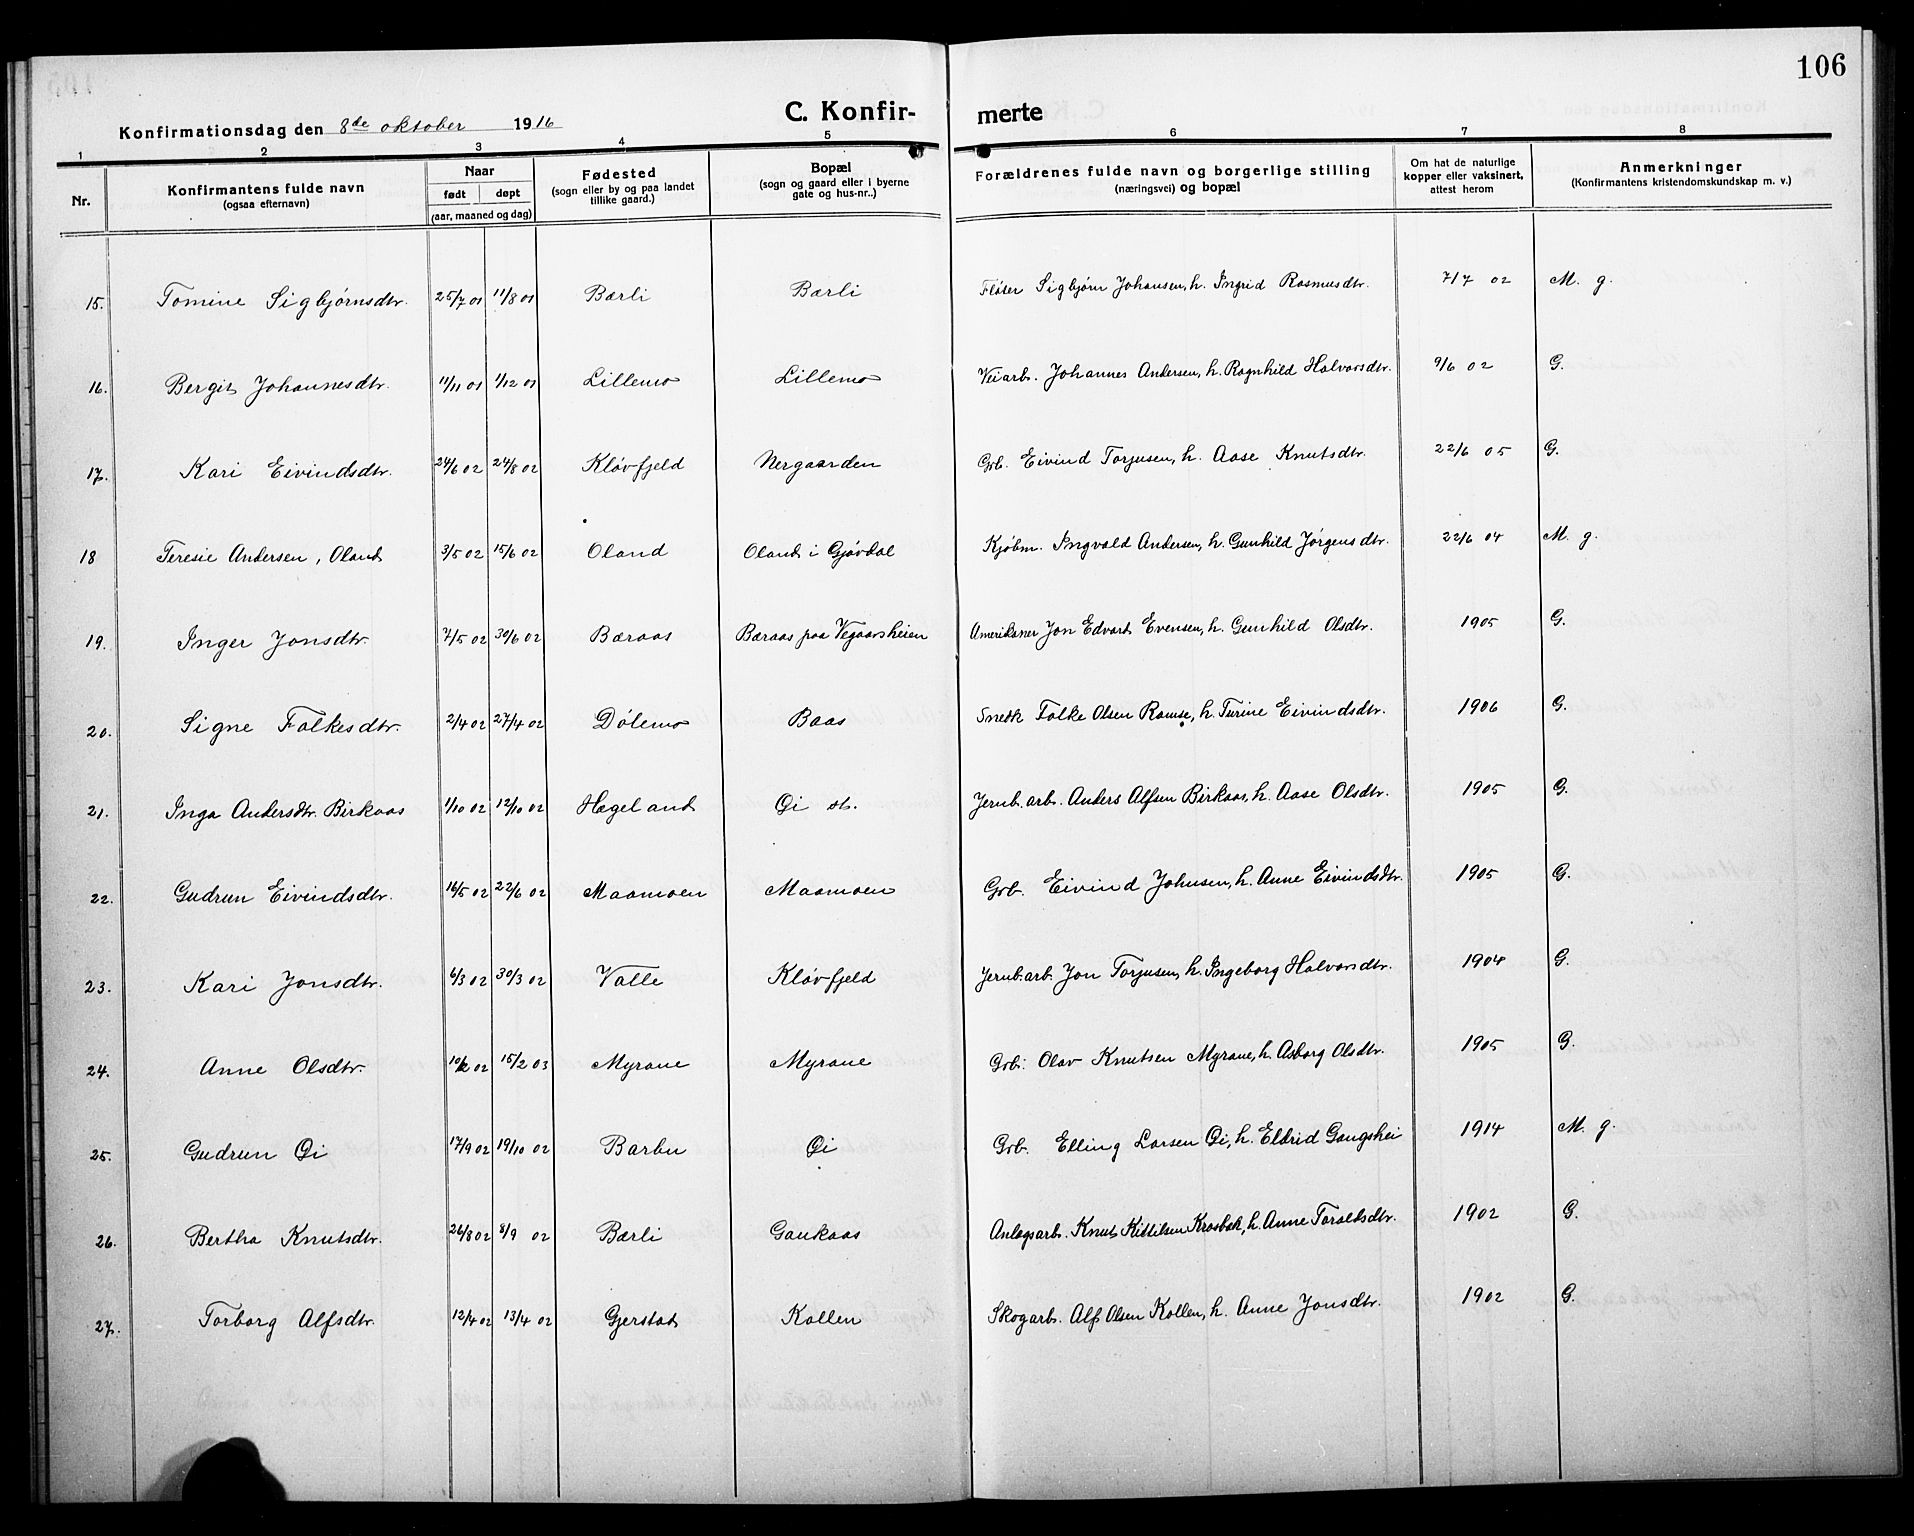 106
Konfirmationsdag den 8de oktober 1916
C. Konfirmerte
1 2 3 4 5 6 7 8
Nr. | Konfirmantens fulde navn (ogsaa efternavn) | Naar født døpt (aar, maaned og dag) | Fødested (sogn eller by og paa landet tillike gaard.) | Bopæl (sogn og gaard eller i byerne gate og hus-nr..) | Forældrenes fulde navn og borgerlige stilling (næringsvei) og bopæl | Om hat de naturlige kopper eller vaksinert, attest herom | Anmerkninger (Konfirmantens kristendomskundskap m. v.)
15. Tomine Sigbjørnsdtr. 25/7 01 11/8 01 Bærli Bærli Fløter Sigbjørn Johansen, h. Ingrid Rasmusdtr. 7/7 02 M. g.
16. Bergit Johannesdtr. 11/11 01 1/12 01 Lillemo Lillemo Veiarb. Johannes Andersen, h. Ragnhild Halvorsdtr. 9/6 02 G.
17. Kari Eivindsdtr. 24/6 02 24/8 02 Kløvfjeld Nergaarden Grb. Eivind Torjusen, h. Aase Knutsdtr. 22/6 05 G.
18 Teresie Andersen, Oland 3/5 02 15/6 02 Oland Oland i Gjøvdal Kjøbm. Ingvald Andersen, h. Gunhild Jørgensdtr. 22/6 04 M. g.
19. Inger Jonsdtr. 7/5 02 30/6 02 Bæraas Bæraas paa Vegaarsheien Amerikaner Jon Edvart Evensen, h. Gunhild Olsdtr. 1905 G.
20. Signe Falkesdtr. 2/4 02 27/4 02 Dølemo Baas Snekk Falke Olsen Ramse, h. Turine Eivindsdtr. 1906 G.
21. Inga Andersdtr. Birkaas 1/10 02 12/10 02 Hægeland Øi st. Jernb. arb. Anders Alfsen Birkaas, h. Aase Olsdtr. 1905 G.
22. Gudrun Eivindsdtr. 16/5 02 22/6 02 Maamoen Maamoen Grb. Eivind Johnsen, h. Anne Eivindsdtr. 1905 G.
23. Kari Jonsdtr. 6/3 02 30/3 02 Valle Kløvfjeld Jernb. arb. Jon Torjusen, h. Ingeborg Halvorsdtr. 1904 G.
24. Anne Olsdtr. 10/2 02 15/2 03 Myrane Myrane Grb. Olav Knutsen Myrane, h. Asborg Olsdtr. 1905 G.
25. Gudrun Øi 17/9 02 19/10 02 Barbu Øi Grb. Elling Larsen Øi, h. Eldrid Gangshei 1914 M. g.
26. Bertha Knutsdtr. 26/8 02 8/9 02 Bærli Gaukaas Anlagsarb. Knut Kittilsen Krosbæk, h. Anne Taraldsdtr. 1902 G.
27. Torborg Alfsdtr. 12/4 02 13/4 02 Gjerstad Kollen Skogarb. Alf Olsen Kollen, h. Anne Jonsdtr. 1902 G.